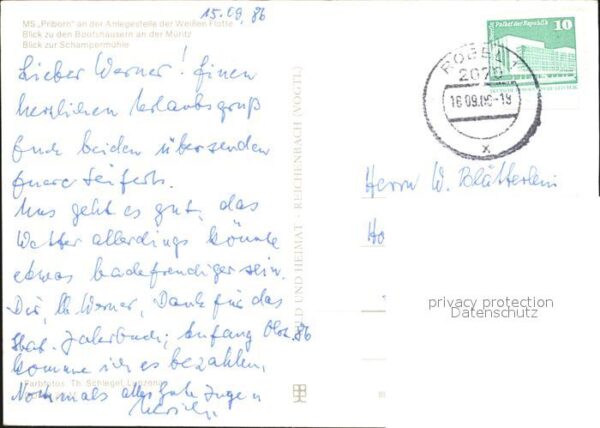 15.09.86
MS „Priborn" an der Anlegestelle der Weißen Flotte
Blick zu den Bootshäusern an der Müritz
Blick zur Schampermühle
Lieber Werner! Einen
herzlichen Urlaubsgruß
Euch beiden übersenden
Euere Seiferts.
Uns geht es gut, das
Wetter allerdings könnte
etwas badefreudiger sein.
Dir, lb. Werner, Dank für das
Jahrbuch; Anfang Okt. 86
komme ich es bezahlen.
Nochmals alles Gute Eugen
Farbfotos: Th. Schlegel,
BILD UND HEIMAT · REICHENBACH (VOGTL)
Palast der Republik 10
RÖBEL 1
2070
16.09.86-19
x
Herrn W. Blütterlein
Ho
privacy protection
Datenschutz